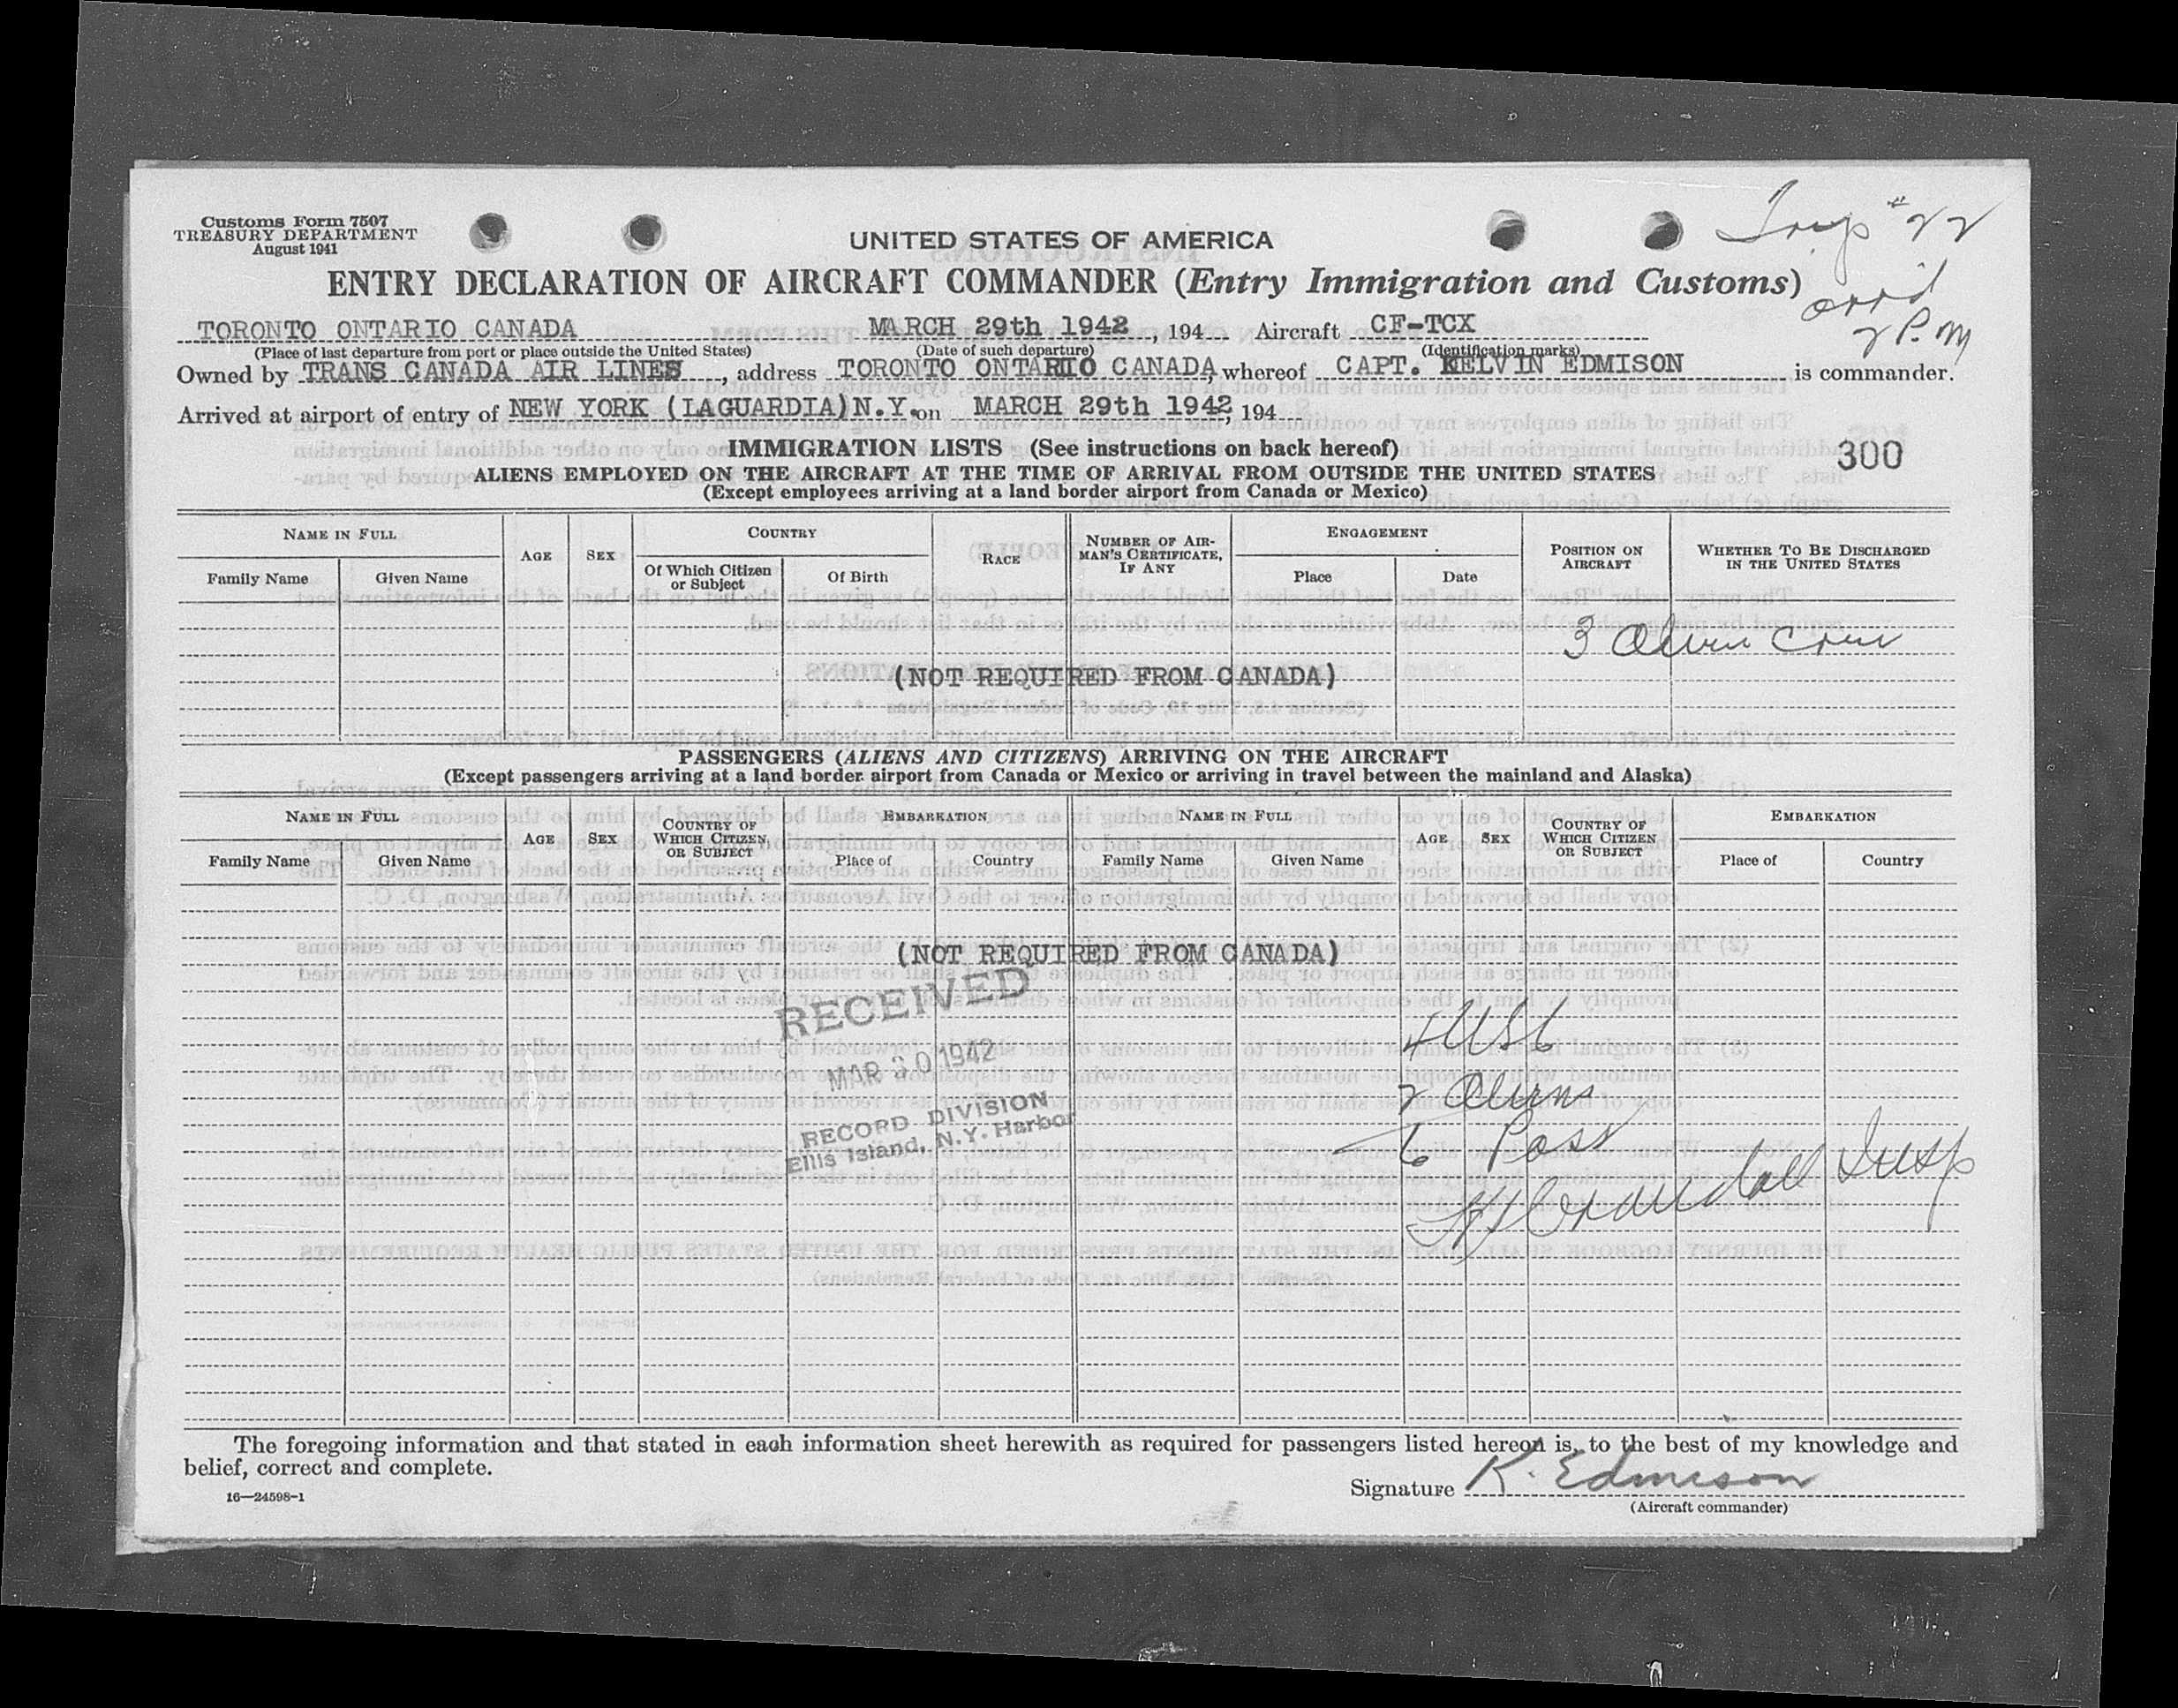 Customs Form 7507
TREASURY DEPARTMENT
August 1941
UNITED STATES OF AMERICA
Trip #22
ENTRY DECLARATION OF AIRCRAFT COMMANDER (Entry Immigration and Customs)
arr'd
2 P.M
TORONTO ONTARIO CANADA MARCH 29th 1942, 194 Aircraft CF-TCX
(Place of last departure from port or place outside the United States) (Date of such departure) (Identification marks)
Owned by TRANS CANADA AIR LINES, address TORONTO ONTARIO CANADA, whereof CAPT. KELVIN EDMISON is commander.
Arrived at airport of entry of NEW YORK (LAGUARDIA) N.Y. on MARCH 29th 1942, 194
IMMIGRATION LISTS (See instructions on back hereof)
300
ALIENS EMPLOYED ON THE AIRCRAFT AT THE TIME OF ARRIVAL FROM OUTSIDE THE UNITED STATES
(Except employees arriving at a land border airport from Canada or Mexico)
NAME IN FULL AGE SEX COUNTRY RACE NUMBER OF AIRMAN'S CERTIFICATE, IF ANY ENGAGEMENT POSITION ON AIRCRAFT WHETHER TO BE DISCHARGED IN THE UNITED STATES
Family Name Given Name Of Which Citizen or Subject Of Birth Place Date
3 Alien Crew
(NOT REQUIRED FROM CANADA)
PASSENGERS (ALIENS AND CITIZENS) ARRIVING ON THE AIRCRAFT
(Except passengers arriving at a land border airport from Canada or Mexico or arriving in travel between the mainland and Alaska)
NAME IN FULL AGE SEX COUNTRY OF WHICH CITIZEN OR SUBJECT EMBARKATION NAME IN FULL AGE SEX COUNTRY OF WHICH CITIZEN OR SUBJECT EMBARKATION
Family Name Given Name Place of Country Family Name Given Name Place of Country
(NOT REQUIRED FROM CANADA)
RECEIVED
MAR 30 1942
RECORD DIVISION
Ellis Island, N.Y. Harbor
4 USC
2 Aliens
6 Pass
Crandall Insp
The foregoing information and that stated in each information sheet herewith as required for passengers listed hereon is, to the best of my knowledge and
belief, correct and complete.
Signature K. Edmison
16—24598-1
(Aircraft commander)